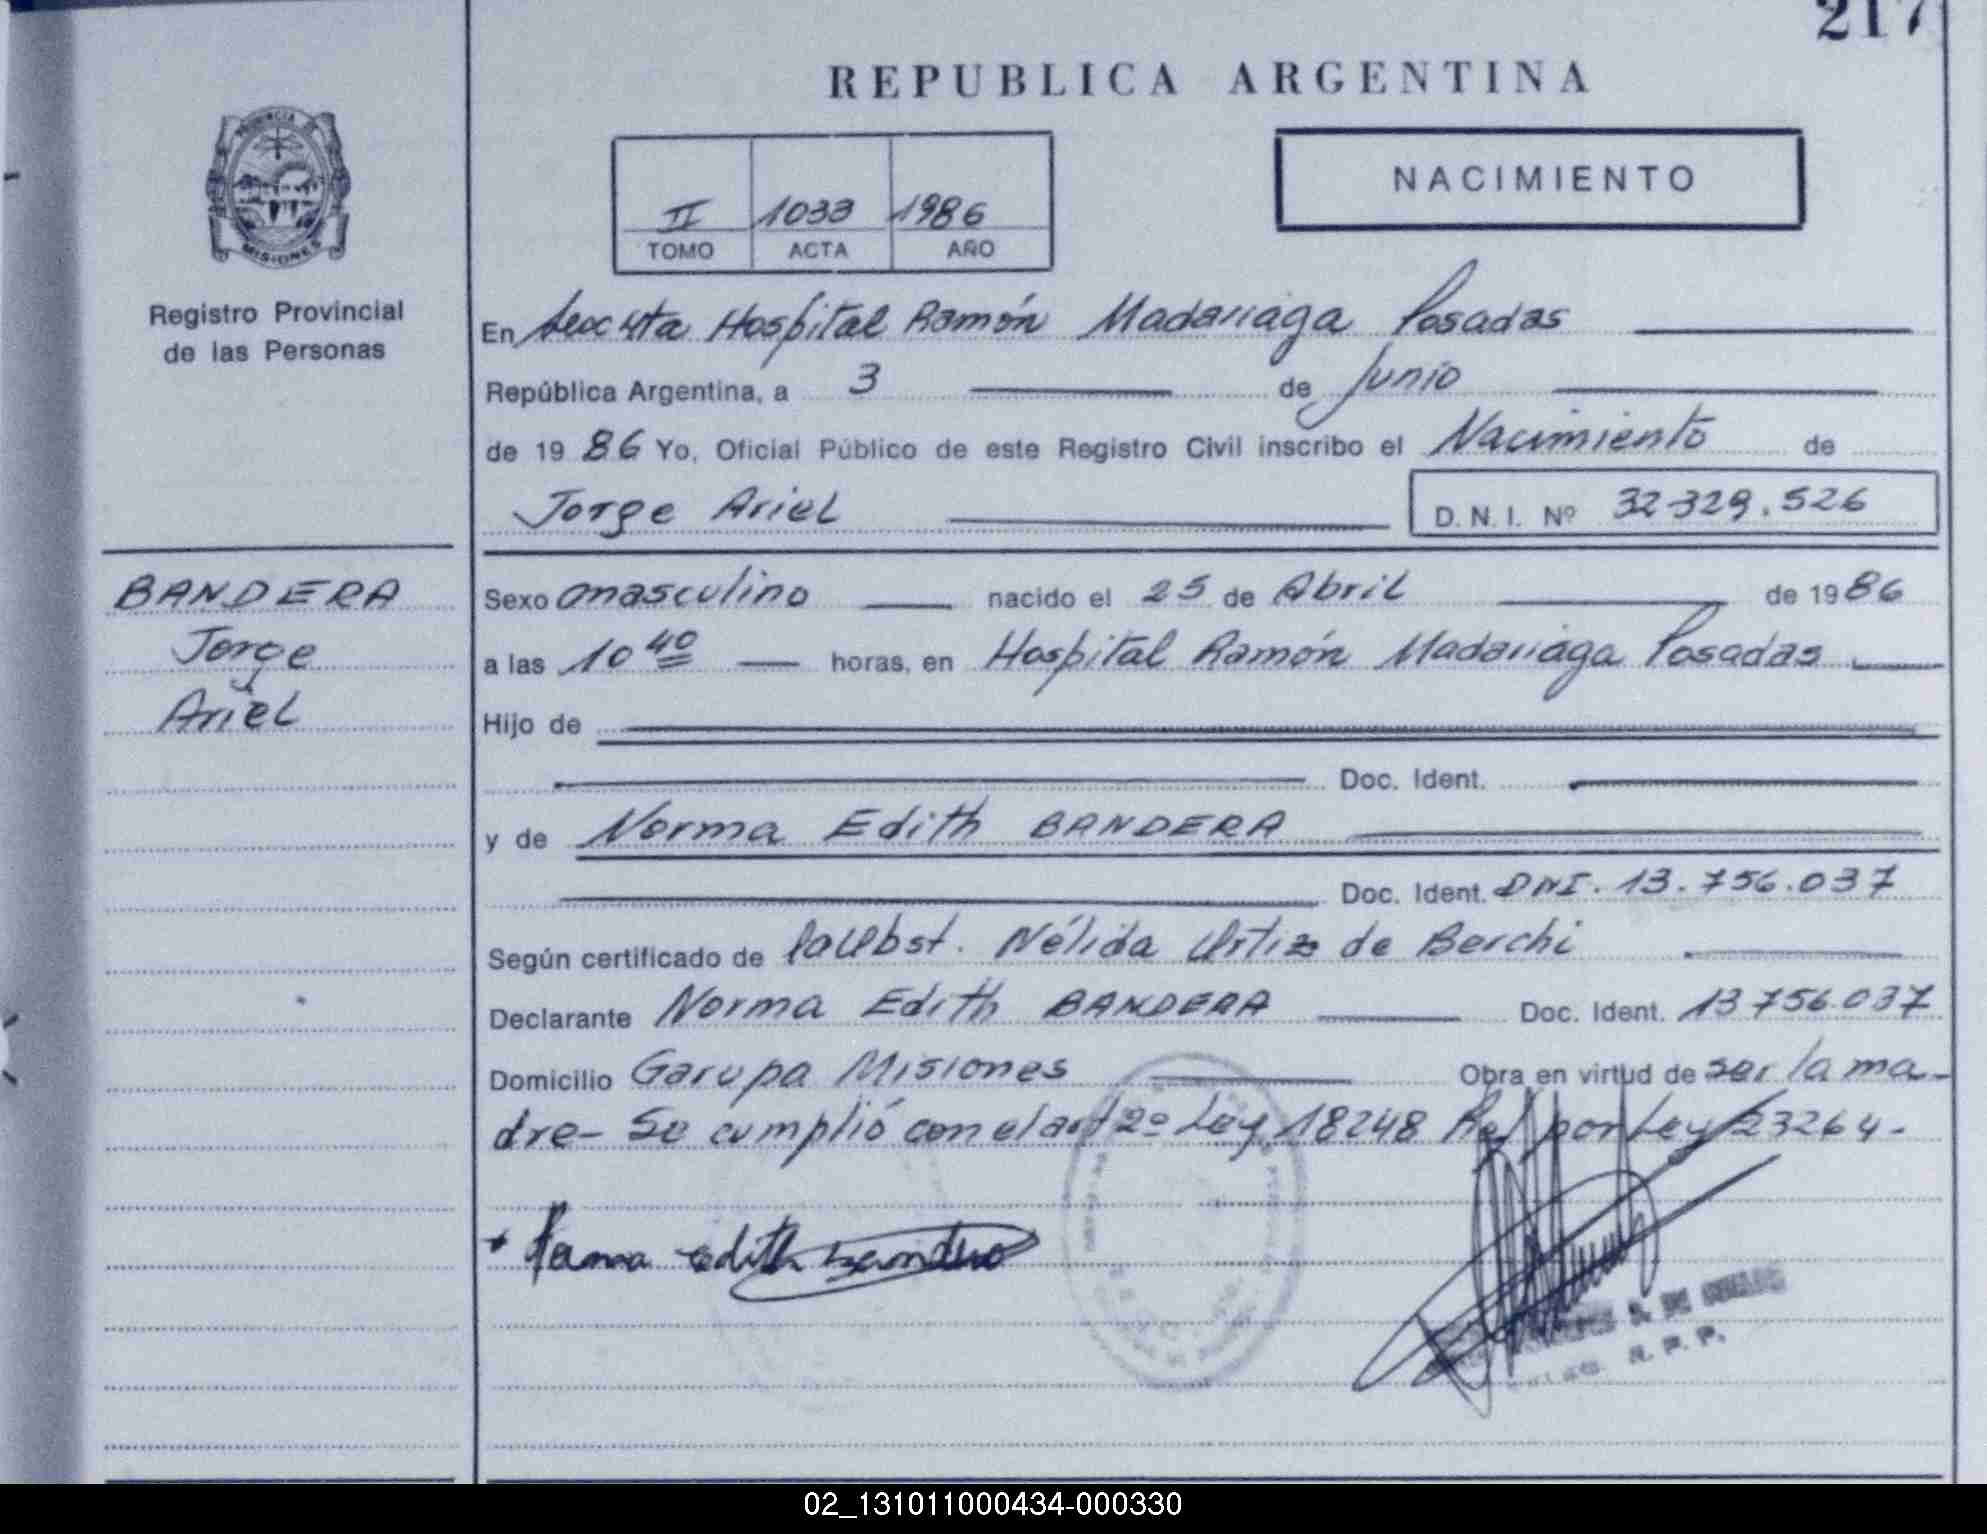 217
REPUBLICA ARGENTINA
PROVINCIA DE
MISIONES
Registro Provincial
de las Personas
NACIMIENTO
II 1033 1986
TOMO ACTA AÑO
En Hospital Ramón Madariaga Posadas
República Argentina, a 3 de Junio
de 1986 Yo, Oficial Público de este Registro Civil inscribo el Nacimiento de
Jorge Ariel D.N.I. Nº 32329.526
BANDERA
Jorge
Ariel
Sexo masculino nacido el 25 de Abril de 1986
a las 10 40 horas, en Hospital Ramón Madariaga Posadas
Hijo de
Doc. Ident.
y de Norma Edith BANDERA
Doc. Ident. DNI. 13.756.037
Según certificado de Nélida Urtiz de Berchi
Declarante Norma Edith BANDERA Doc. Ident. 13756.037
Domicilio Garupa Misiones Obra en virtud de ser la ma-
dre- Se cumplió con el art 2º Ley 18248 Ref por Ley 23264-
Norma edith Bandera
R. P. P.
02_131011000434-000330